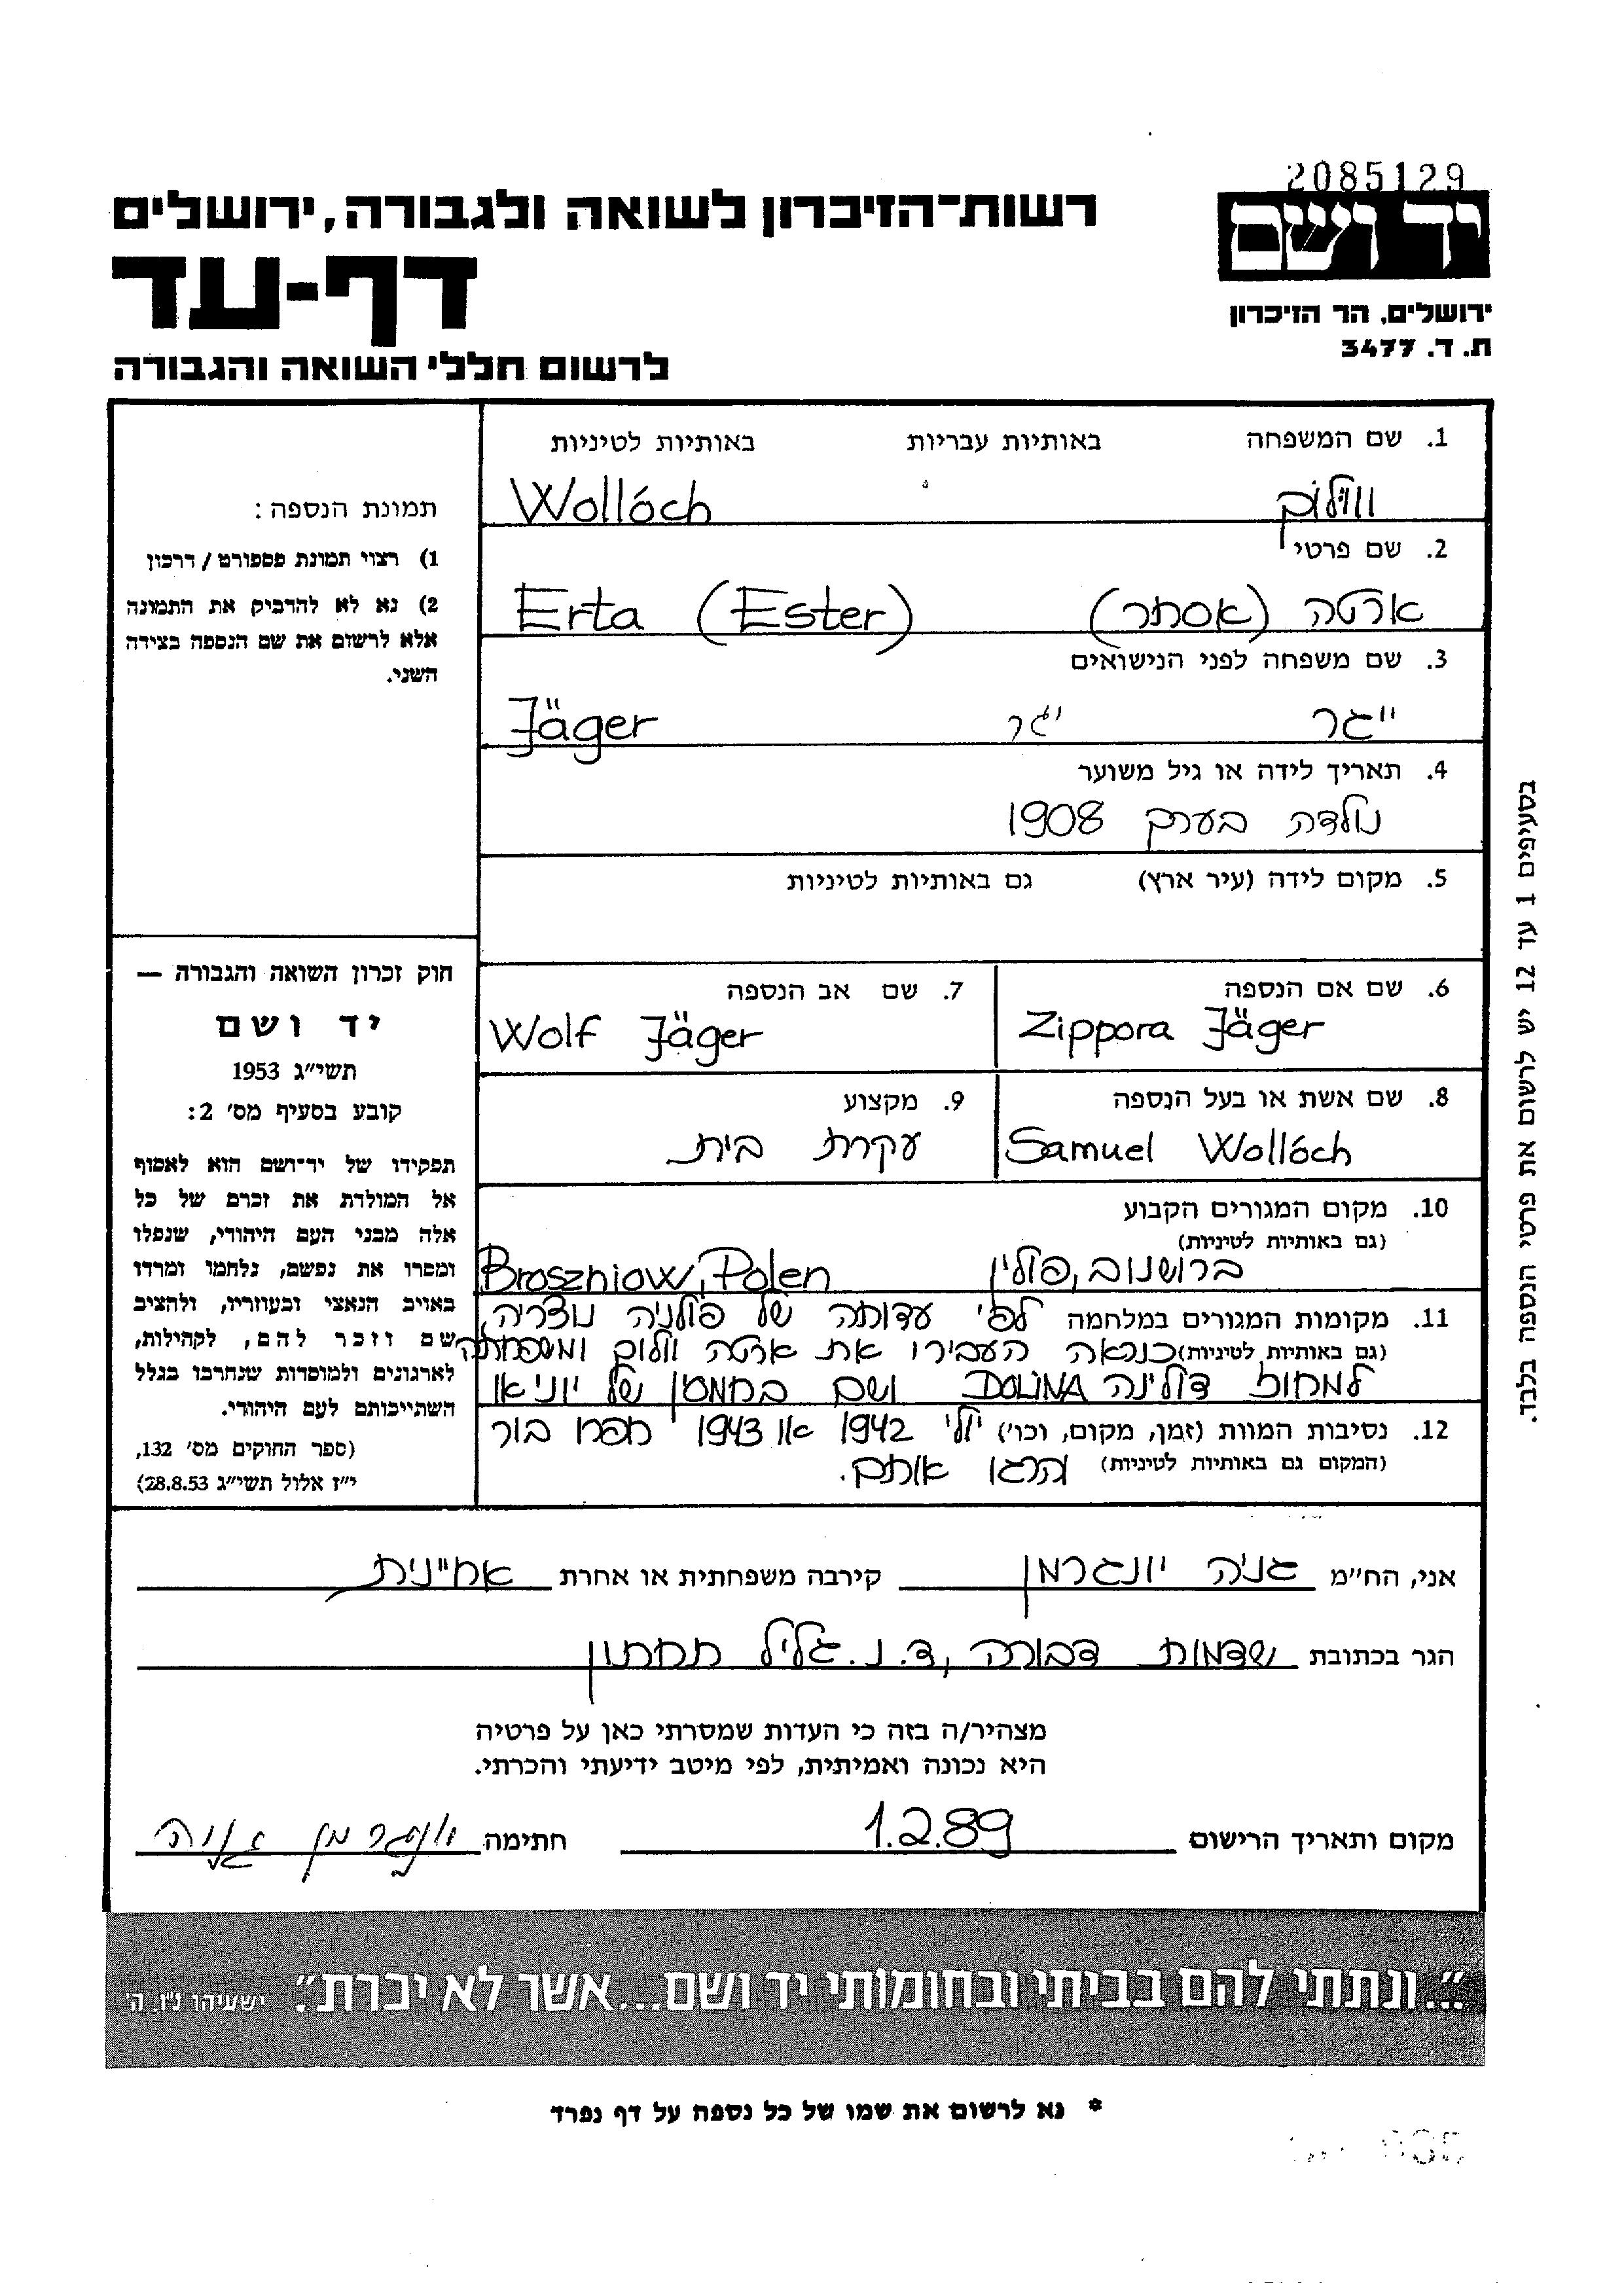 2085129
יד ושם
ירושלים, הר הזיכרון
ת. ד. 3477
רשות־הזיכרון לשואה ולגבורה, ירושלים
דף-עד
לרשום חללי השואה והגבורה
1. שם המשפחה באותיות עבריות באותיות לטיניות
וולוך Wollóch
2. שם פרטי
ארטה (אסתר) Erta (Ester)
3. שם משפחה לפני הנישואים
ייגר יגר Jäger
4. תאריך לידה או גיל משוער
נולדה בערך 1908
5. מקום לידה (עיר ארץ) גם באותיות לטיניות
6. שם אם הנספה
Zippora Jäger
7. שם אב הנספה
Wolf Jäger
8. שם אשת או בעל הנספה
Samuel Wollóch
9. מקצוע
עקרת בית
10. מקום המגורים הקבוע
(גם באותיות לטיניות)
ברושנוב, פולין Broszniow, Polen
11. מקומות המגורים במלחמה לפי עדותה של פולניה נוצריה,
(גם באותיות לטיניות) כנראה העבירו את ארטה וולוך ומשפחתה
למחוז דולינה DOLINA ושם בחמסן של יוני או
12. נסיבות המוות (זמן, מקום, וכו') יולי 1942 או 1943 חפרו בור
(המקום גם באותיות לטיניות) והרגו אותם.
תמונת הנספה:
1) רצוי תמונת פספורט / דרכון
2) נא לא להדביק את התמונה
אלא לרשום את שם הנספה בצידה
השני.
חוק זכרון השואה והגבורה —
יד ושם
תשי״ג 1953
קובע בסעיף מס׳ 2:
תפקידו של יד־ושם הוא לאסוף
אל המולדת את זכרם של כל
אלה מבני העם היהודי, שנפלו
ומסרו את נפשם, נלחמו ומרדו
באויב הנאצי ובעוזריו, ולהציב
שם וזכר להם, לקהילות,
לארגונים ולמוסדות שנחרבו בגלל
השתייכותם לעם היהודי.
(ספר החוקים מס׳ 132,
י״ז אלול תשי״ג 28.8.53)
בסעיפים 1 עד 12 יש לרשום את פרטי הנספה בלבד.
אני, הח״מ גניה יונגרמן קירבה משפחתית או אחרת אחיינית
הגר בכתובת שדמות דבורה, ד.נ. גליל תחתון
מצהיר/ה בזה כי העדות שמסרתי כאן על פרטיה
היא נכונה ואמיתית, לפי מיטב ידיעתי והכרתי.
מקום ותאריך הרישום 1.2.89 חתימה יונגרמן גניה
״...ונתתי להם בביתי ובחומותי יד ושם...אשר לא יכרת״. ישעיהו נ״ו, ה׳
* נא לרשום את שמו של כל נספה על דף נפרד